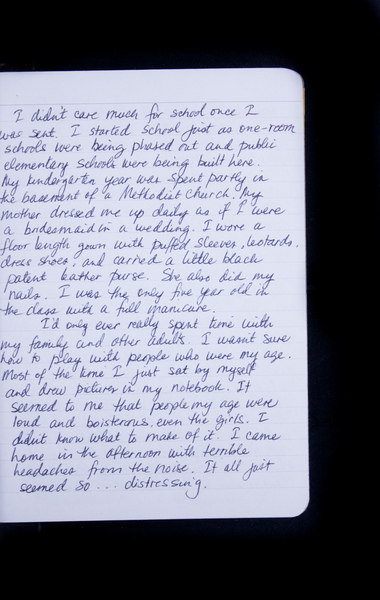 I didn't care much for school once I
was sent. I started school just as one-room
schools were being phased out and public
elementary schools were being built here.
My kindergarten year was spent partly in
the basement of a Methodist Church. My
mother dressed me up daily as if I were
a bridesmaid in a wedding. I wore a
floor length gown with puffed sleeves, leotards,
dress shoes, and carried a little black
patent leather purse. She also did my
nails. I was the only five year old in
the class with a full manicure.
I'd only ever really spent time with
my family and other adults. I wasn't sure
how to play with people who were my age.
Most of the time I just sat by myself
and drew pictures in my notebook. It
seemed to me that people my age were
loud and boisterous, even the girls. I
didn't know what to make of it. I came
home in the afternoon with terrible
headaches from the noise. It all just
seemed so ... distressing.